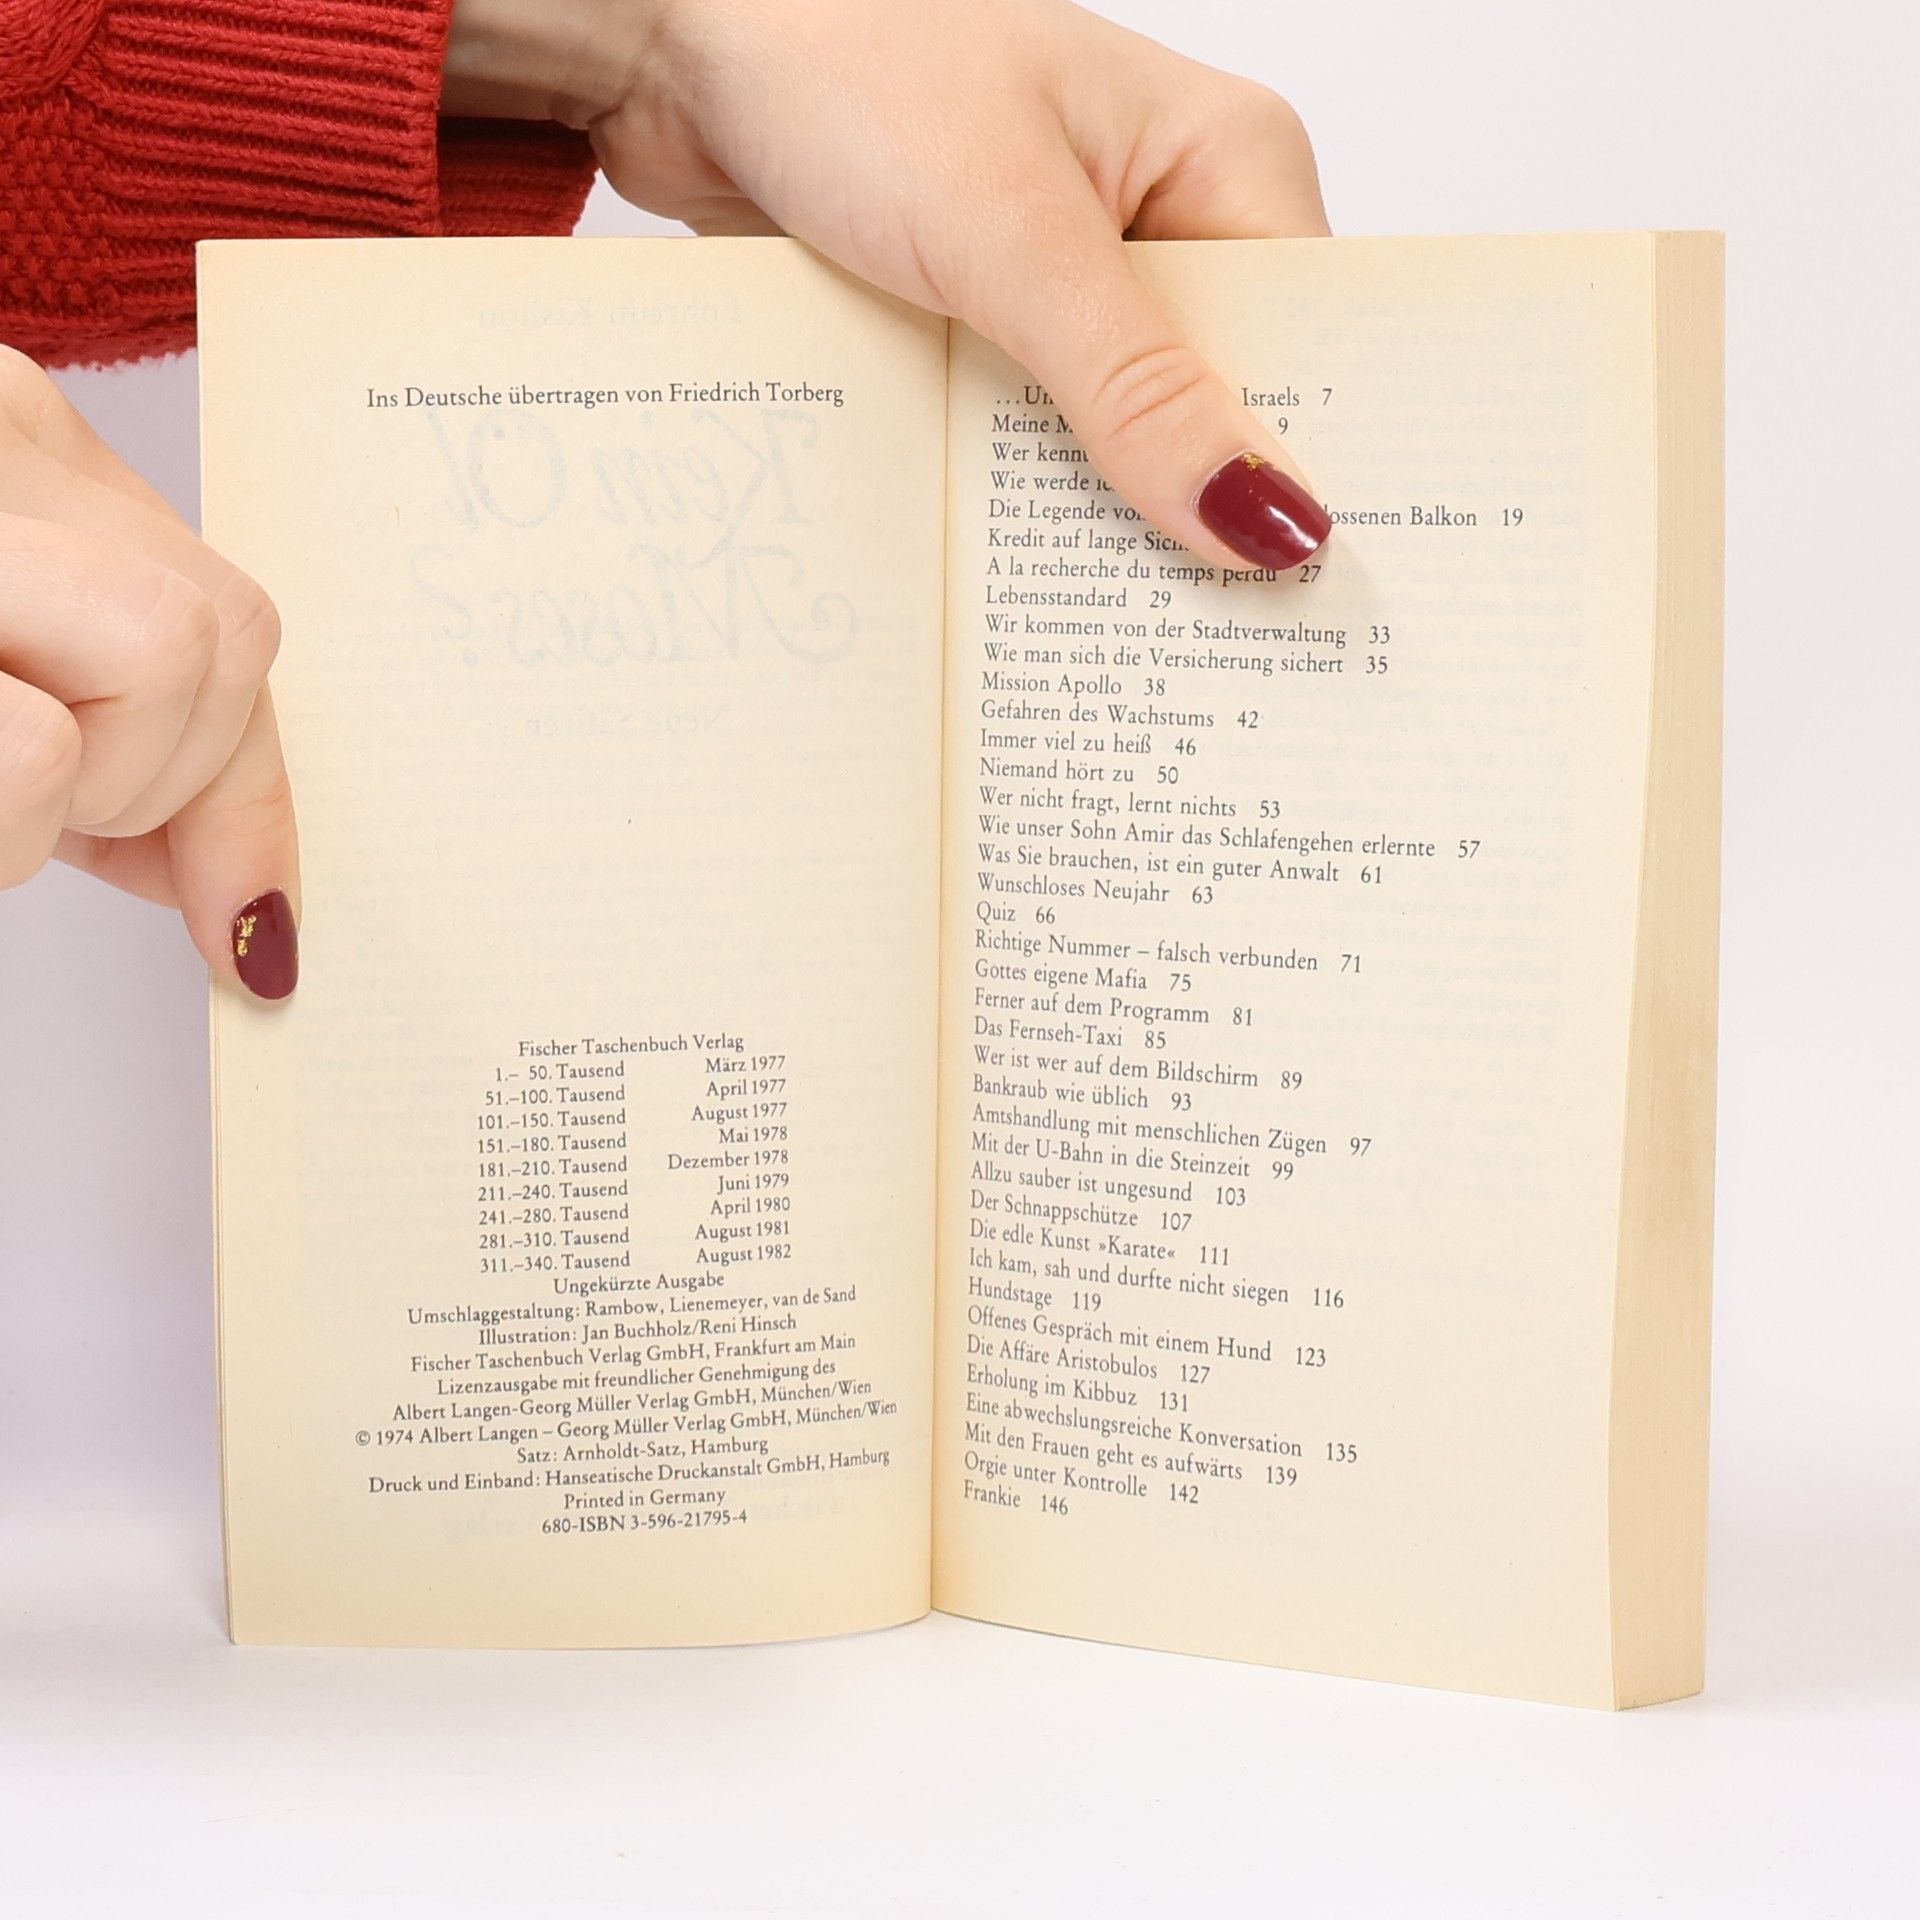 Ins Deutsche übertragen von Friedrich Torberg
Fischer Taschenbuch Verlag
1.– 50. Tausend März 1977
51.–100. Tausend April 1977
101.–150. Tausend August 1977
151.–180. Tausend Mai 1978
181.–210. Tausend Dezember 1978
211.–240. Tausend Juni 1979
241.–280. Tausend April 1980
281.–310. Tausend August 1981
311.–340. Tausend August 1982
Ungekürzte Ausgabe
Umschlaggestaltung: Rambow, Lienemeyer, van de Sand
Illustration: Jan Buchholz/Reni Hinsch
Fischer Taschenbuch Verlag GmbH, Frankfurt am Main
Lizenzausgabe mit freundlicher Genehmigung des
Albert Langen-Georg Müller Verlag GmbH, München/Wien
© 1974 Albert Langen – Georg Müller Verlag GmbH, München/Wien
Satz: Arnholdt-Satz, Hamburg
Druck und Einband: Hanseatische Druckanstalt GmbH, Hamburg
Printed in Germany
680-ISBN 3-596-21795-4
Israels 7
Meine 9
Wer kennt
Wie werde
Die Legende Balkon 19
Kredit auf lange
A la recherche du temps perdu 27
Lebensstandard 29
Wir kommen von der Stadtverwaltung 33
Wie man sich die Versicherung sichert 35
Mission Apollo 38
Gefahren des Wachstums 42
Immer viel zu heiß 46
Niemand hört zu 50
Wer nicht fragt, lernt nichts 53
Wie unser Sohn Amir das Schlafengehen erlernte 57
Was Sie brauchen, ist ein guter Anwalt 61
Wunschloses Neujahr 63
Quiz 66
Richtige Nummer – falsch verbunden 71
Gottes eigene Mafia 75
Ferner auf dem Programm 81
Das Fernseh-Taxi 85
Wer ist wer auf dem Bildschirm 89
Bankraub wie üblich 93
Amtshandlung mit menschlichen Zügen 97
Mit der U-Bahn in die Steinzeit 99
Allzu sauber ist ungesund 103
Der Schnappschütze 107
Die edle Kunst »Karate« 111
Ich kam, sah und durfte nicht siegen 116
Hundstage 119
Offenes Gespräch mit einem Hund 123
Die Affäre Aristobulos 127
Erholung im Kibbuz 131
Eine abwechslungsreiche Konversation 135
Mit den Frauen geht es aufwärts 139
Orgie unter Kontrolle 142
Frankie 146